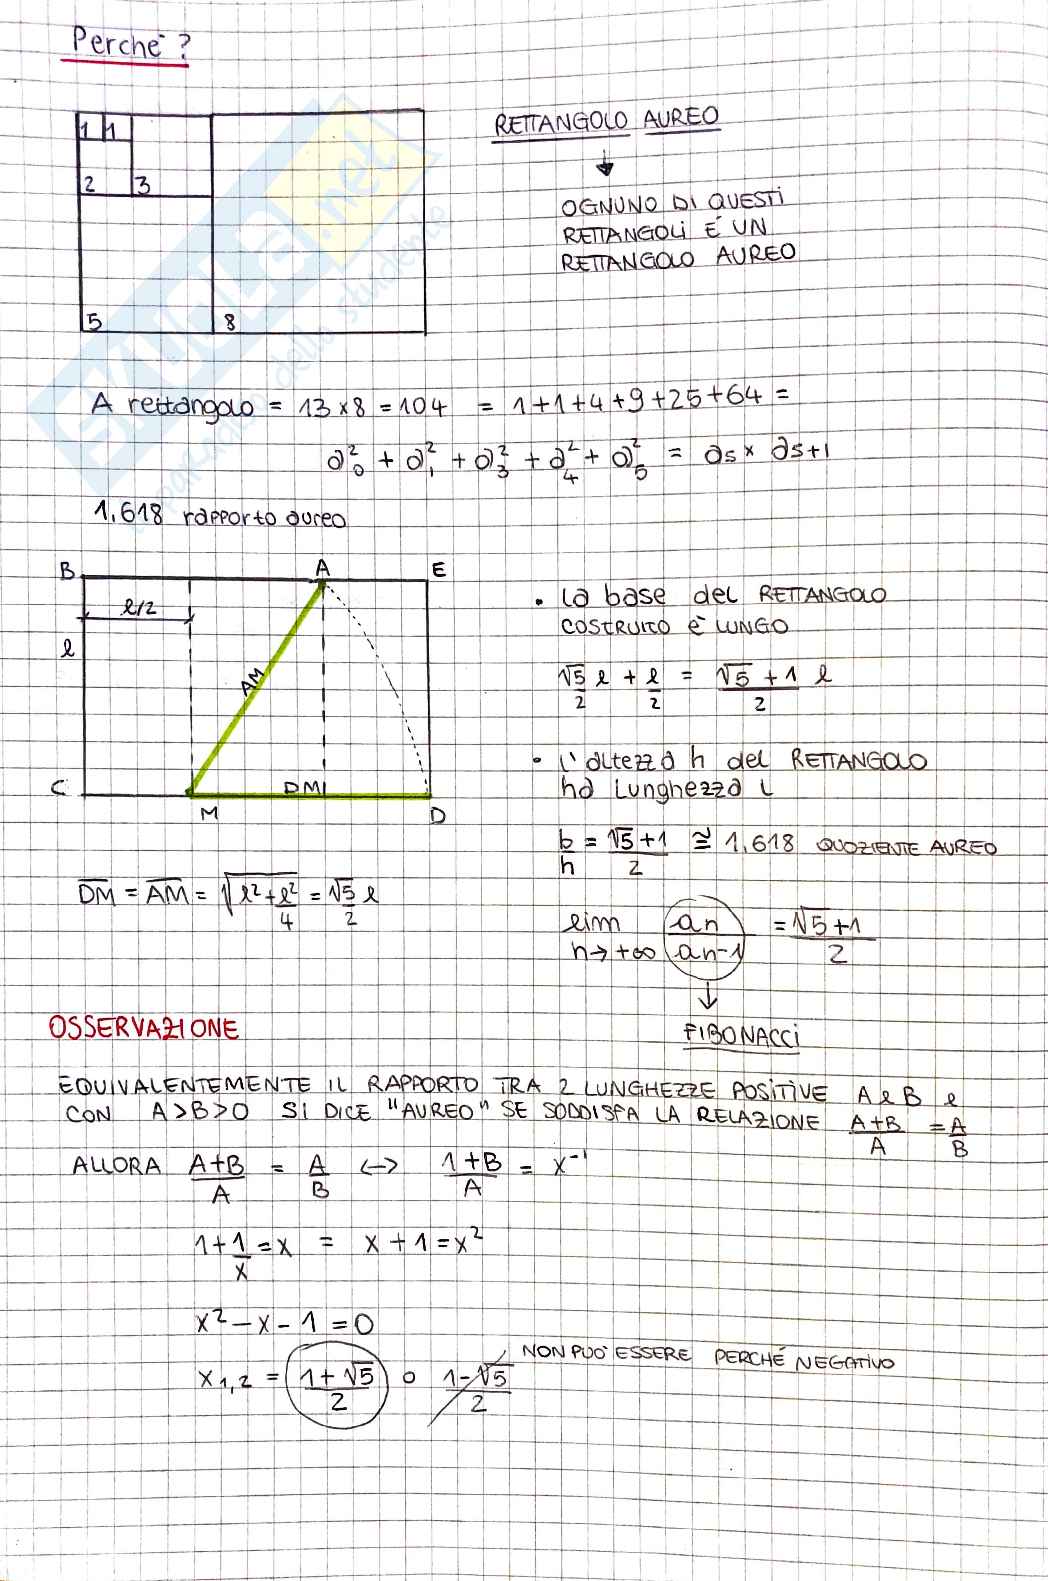 Perché ?
1 1
2 3
5 8
RETTANGOLO AUREO
↓
OGNUNO DI QUESTI
RETTANGOLI É UN
RETTANGOLO AUREO
A rettangolo = 13 x 8 = 104 = 1+1+4+9+25+64 =
a₀² + a₁² + a₃² + a₄² + a₅² = as x as+1
1,618 rapporto aureo
B A E
l/2
l
AM
C DM
M D
• la base del RETTANGOLO
COSTRUITO è LUNGO
√5/2 l + l/2 = (√5 + 1)/2 l
• l'altezza h del RETTANGOLO
ha lunghezza l
b/h = (√5+1)/2 ≅ 1,618 QUOZIENTE AUREO
DM = AM = √(l²+l²/4) = √5/2 l
lim n→+∞ an/an-1 = (√5+1)/2
↓
FIBONACCI
OSSERVAZIONE
EQUIVALENTEMENTE IL RAPPORTO TRA 2 LUNGHEZZE POSITIVE A e B e
CON A>B>0 SI DICE "AUREO" SE SODDISFA LA RELAZIONE (A+B)/A = A/B
ALLORA (A+B)/A = A/B <-> (1+B)/A = x⁻¹
1+1/x = x = x+1 = x²
x² - x - 1 = 0
NON PUO' ESSERE PERCHÉ NEGATIVO
x1,2 = (1+√5)/2 o (1-√5)/2
SKUOLA.net